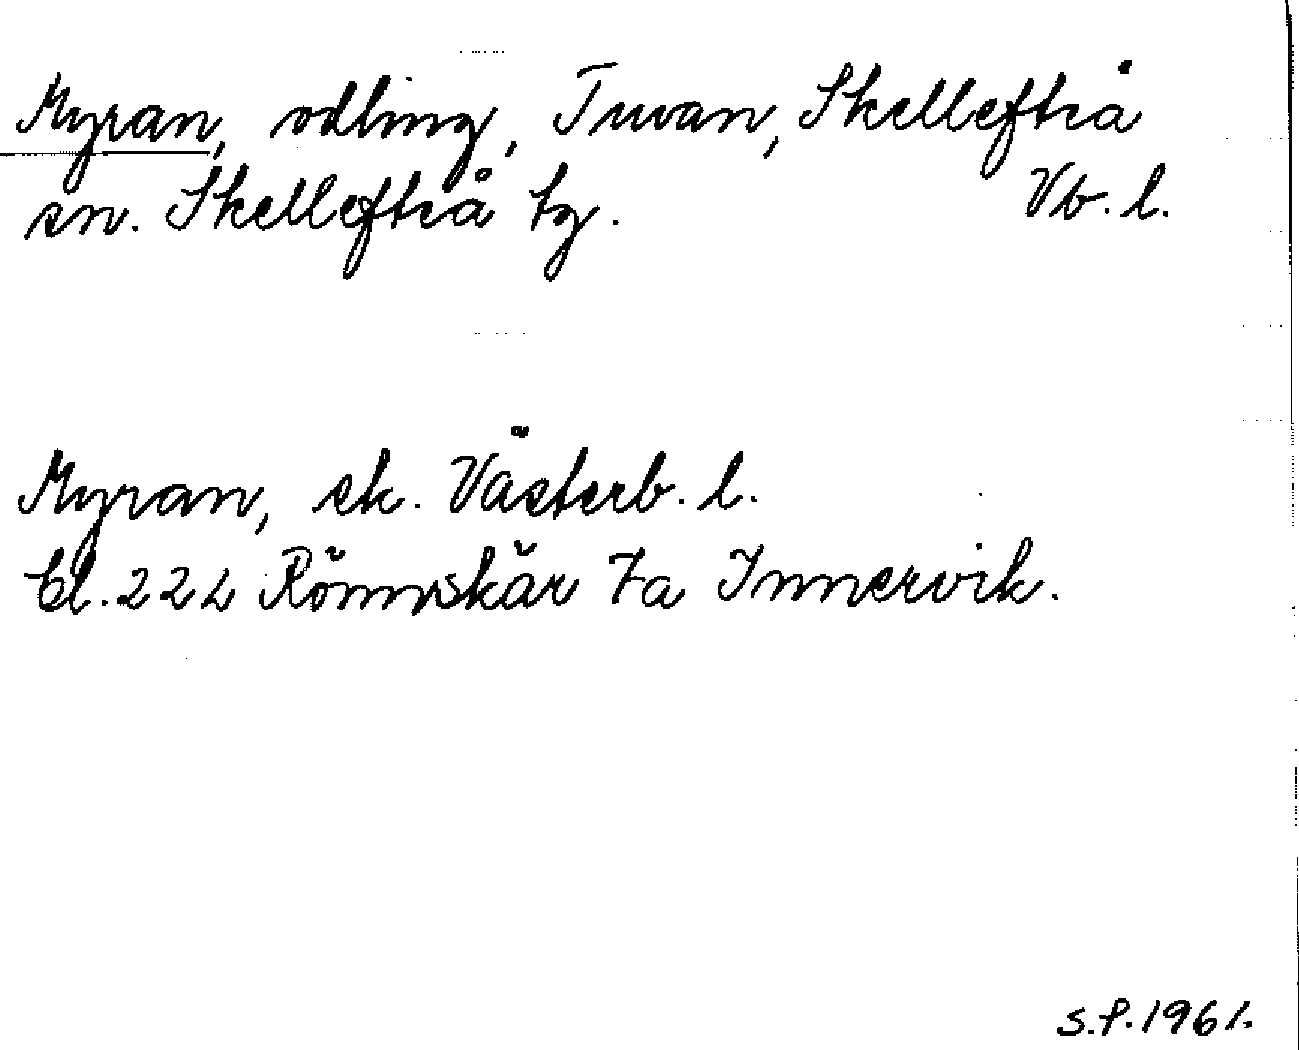 Myran, odling, Tuvan, Skellefteå
sn. Skellefteå tg. Vb. l.
Myran, ek. Västerb. l.
bl. 22L Rönnskär 7a Innervik.
S.P. 1961.